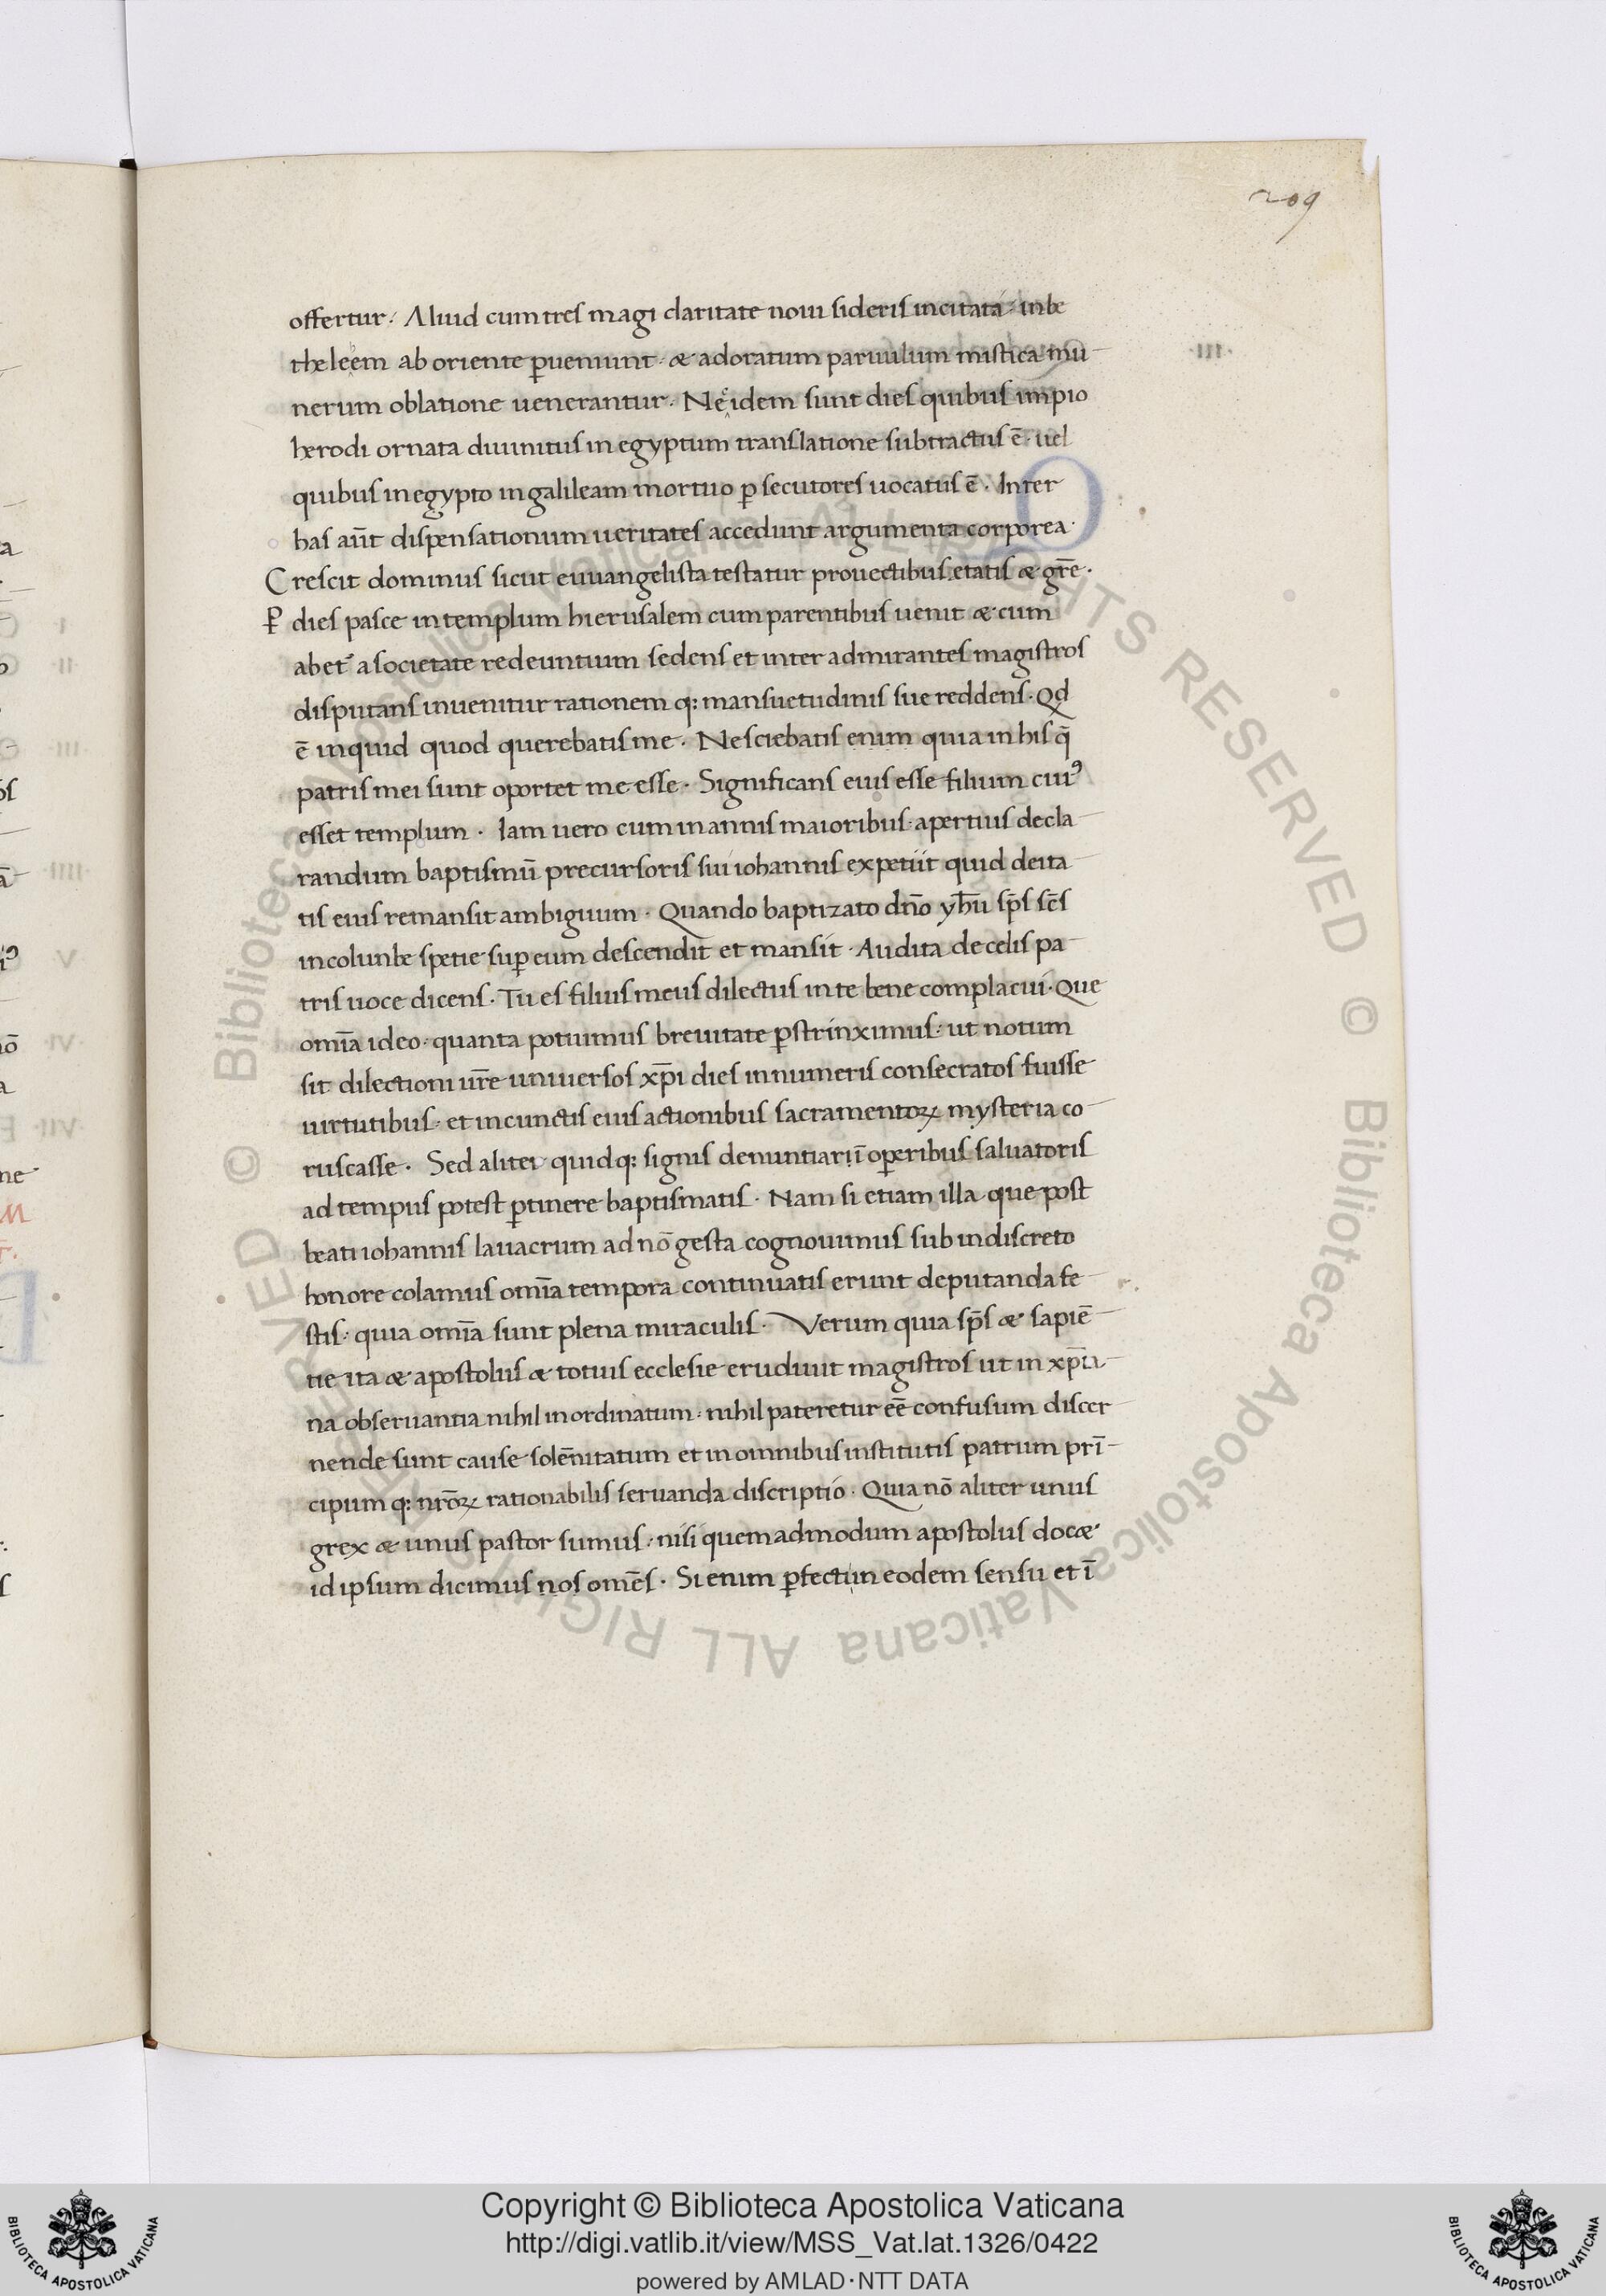 209
offertur: Aliud cum tres magi claritate noui sideris incitata: inbe
theleem ab oriente ꝑueniunt· & adoratum paruulum mistica mu
nerum oblatione uenerantur· Neͨ idem sunt dies quibus impio
herodi ornata diuinitus in egyptum translatione subtractus ē· uel
quibus in egypto in galileam mortuo ꝑsecutores uocatus ē· Inter
has aūt dispensationum ueritates accedunt argumenta corporea·
Crescit dominus sicut euuangelista testatur prouectibus etatis & gr̄e·
Ꝑ dies pasce in templum hierusalem cum parentibus uenit & cum
abet᷑ a societate redeuntium sedens et inter admirantes magistros
disputans inuenitur rationem q: mansuetudinis sue reddens· Qd
ē inquid quod querebatis me· Nesciebatis enim quia in his q̄
patris mei sunt oportet me esse· Significans eius esse filium cuiꝰ
esset templum· Iam uero cum in annis maioribus· apertius decla
randum baptismū precursoris sui iohannis expetiit quid deita
tis eius remansit ambiguum· Quando baptizato dn̄o yhū sp̄s sc̄s
in colunbe spetie suꝑ eum descendit et mansit· Audita de celis pa
tris uoce dicens· Tu es filius meus dilectus in te bene complacui· Que
om̄ia ideo· quanta potuimus breuitate ꝑstrinximus: ut notum
sit dilectioni ur̄e uniuersos xp̄i dies innumeris consecratos fuisse
uirtutibus· et in cunctis eius actionibus sacramentoꝝ mysteria co
ruscasse· Sed aliter quidq: signis denuntiari ī oꝑeribus saluatoris
ad tempus potest ꝑtinere baptismatis· Nam si etiam illa que post
beati iohannis lauacrum ad nō gesta cognouimus sub indiscreto
honore colamus om̄ia tempora continuatis erunt deputanda fe
stis: quia om̄ia sunt plena miraculis· Verum quia sp̄s & sapiē
tie ita & apostolus & totius ecclesie erudiuit magistros ut in xp̄ia
na obseruantia nihil inordinatum· nihil pateretur eē confusum discer
nende sunt cause solēnitatum et in omnibus institutis patrum prī
cipum q: nr̄oꝝ rationabilis seruanda discriptio· Quia nō aliter unus
grex & unus pastor sumus· nisi quemadmodum apostolus doc&
id ipsum dicimus nos omēs· Si enim ꝑfecti in eodem sensu et ī
Copyright © Biblioteca Apostolica Vaticana
http://digi.vatlib.it/view/MSS_Vat.lat.1326/0422
powered by AMLAD·NTT DATA